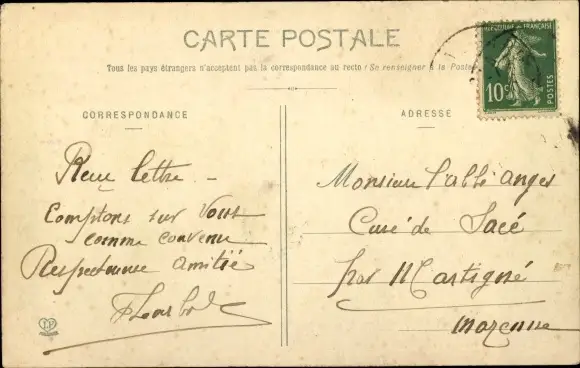 CARTE POSTALE
Tous les pays étrangers n'acceptent pas la correspondance au recto (Se renseigner à la Poste
REPUBLIQUE FRANÇAISE
10c
POSTES
CORRESPONDANCE
ADRESSE
Reçu lettre -
Comptons sur Vous
comme convenu
Respectueuse amitié
Monsieur l'abbé Angès
Curé de Sacé
par Martigné
Mayenne